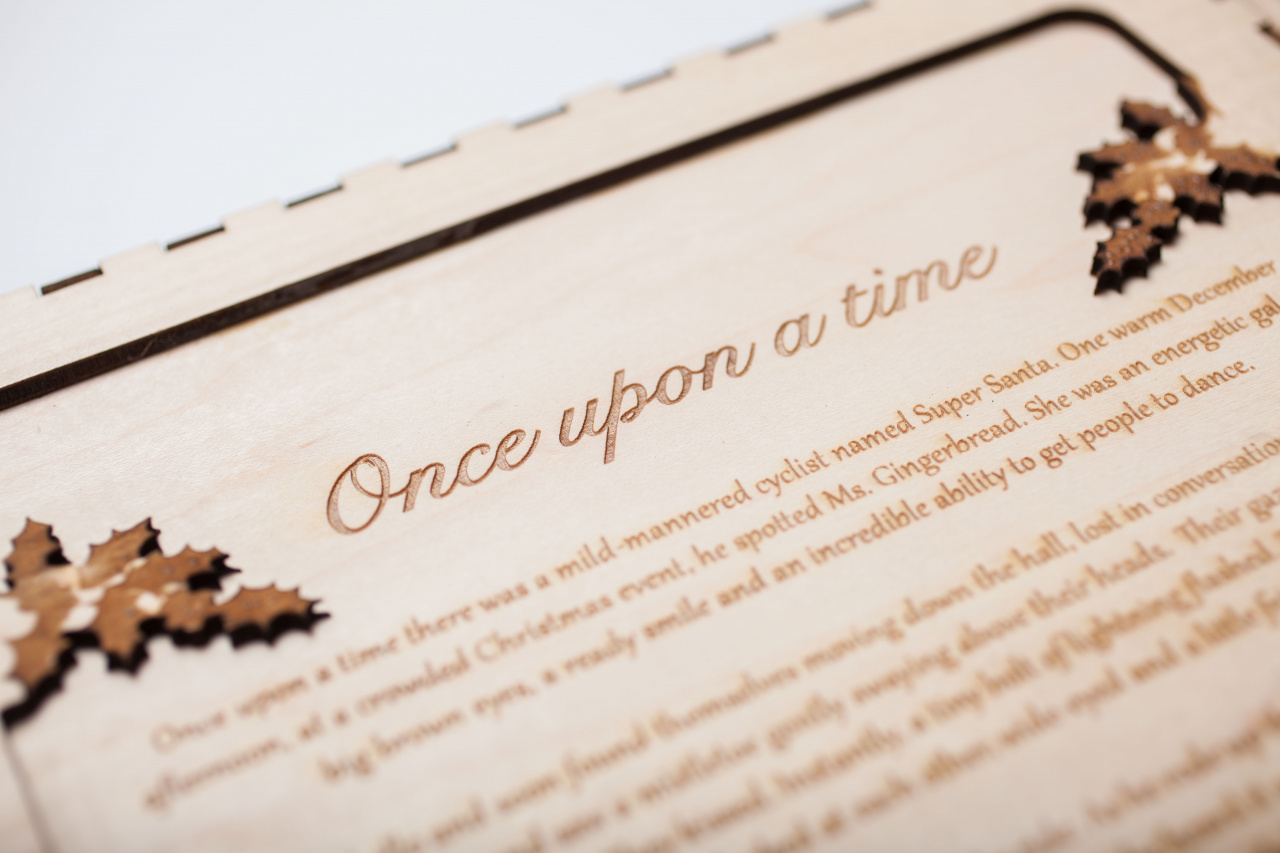 Once upon a time
Once upon a time there was a mild-mannered cyclist named Super Santa. One warm December
afternoon, at a crowded Christmas event, he spotted Ms. Gingerbread. She was an energetic gal
big brown eyes, a ready smile and an incredible ability to get people to dance.
and soon found themselves moving down the hall, lost in conversation
saw a mistletoe gently swaying above their heads. Their
kissed. Instantly, a tiny bolt of lightning flashed
at each other wide eyed and a little